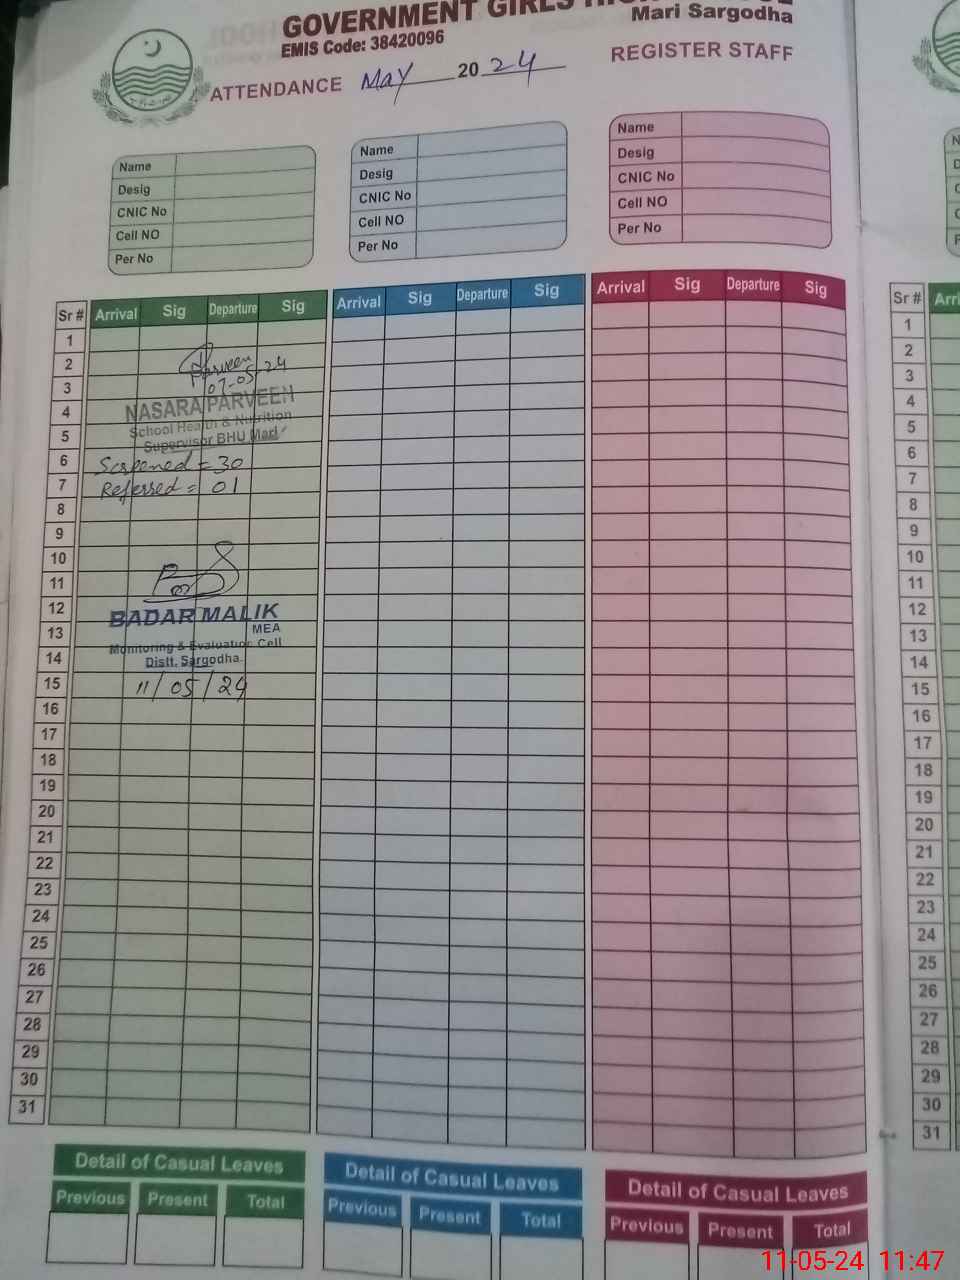 GOVERNMENT GIRLS HIGH SCHOOL
Mari Sargodha
EMIS Code: 38420096
ATTENDANCE May 2024 REGISTER STAFF
Name
Desig
CNIC No
Cell NO
Per No
Name
Desig
CNIC No
Cell NO
Per No
Name
Desig
CNIC No
Cell NO
Per No
Sr # Arrival Sig Departure Sig Arrival Sig Departure Sig Arrival Sig Departure Sig Sr #
1 1
2 Parveen 2
3 07-05-24 3
4 NASARA PARVEEN 4
5 School Health & Nutrition 5
Supervisor BHU Mari
6 Screened = 30 6
7 Referred = 01 7
8 8
9 9
10 10
11 11
12 BADAR MALIK 12
13 MEA 13
Monitoring & Evaluation Cell
14 Distt. Sargodha. 14
15 11/05/24 15
16 16
17 17
18 18
19 19
20 20
21 21
22 22
23 23
24 24
25 25
26 26
27 27
28 28
29 29
30 30
31 31
Detail of Casual Leaves
Previous Present Total
Detail of Casual Leaves
Previous Present Total
Detail of Casual Leaves
Previous Present Total
11-05-24 11:47